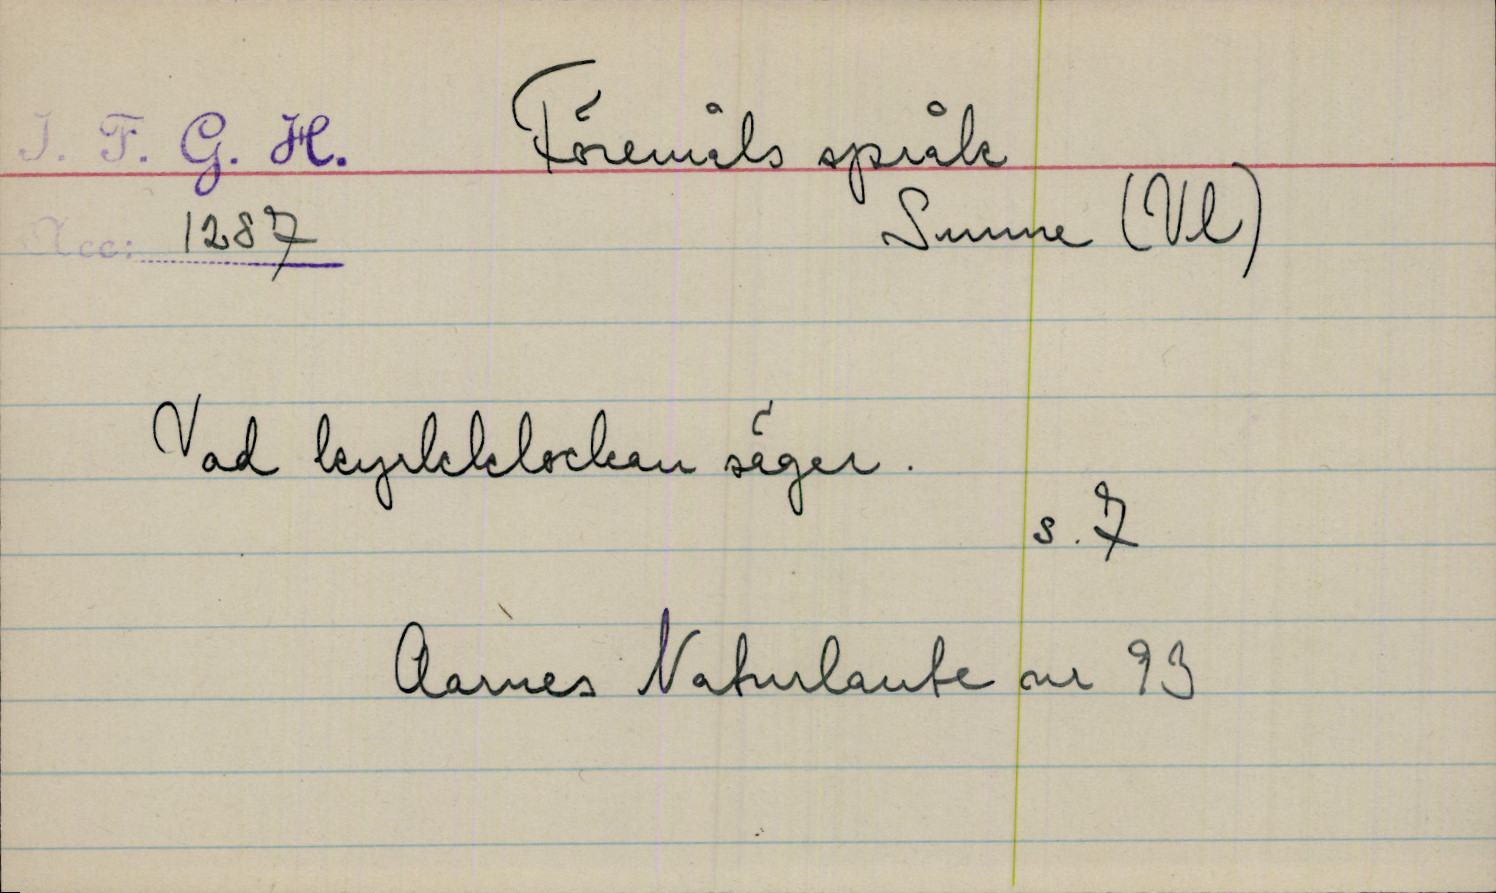 I. F. G. H. Föremåls språk
Acc: 1287 Sunne (Vl)
Vad kyrkklockan säger.
s. 7
Aarnes Naturlaute nr 93